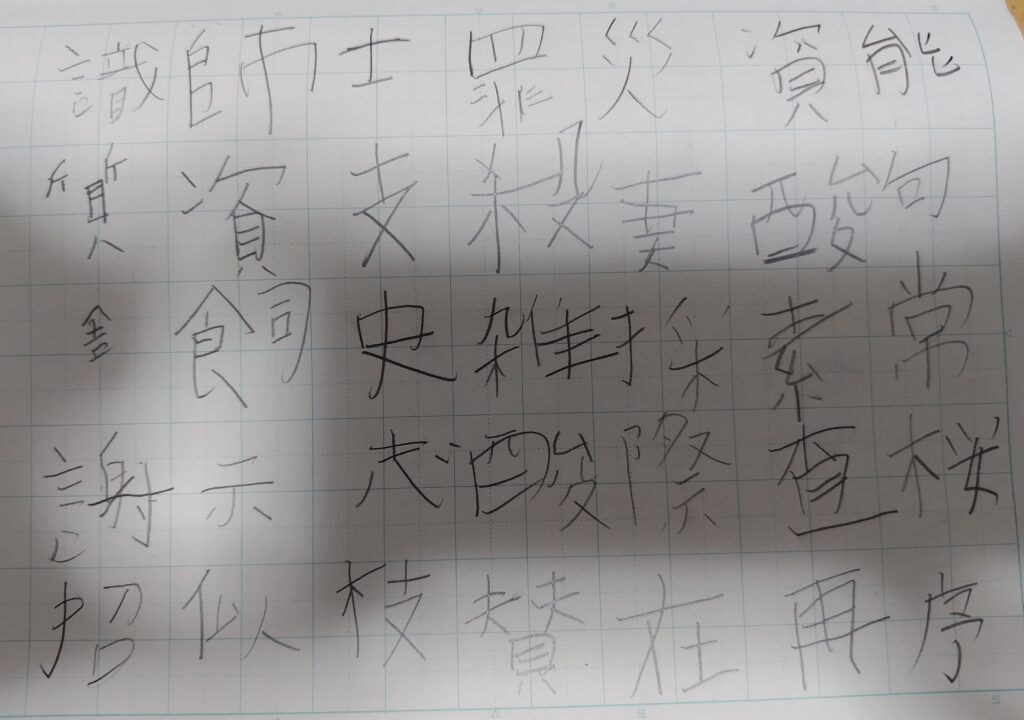 能句常桜序
資酸素査再
災妻採際在
罪殺雑酸賛
士支史枝
師資飼示似
識質舎謝招